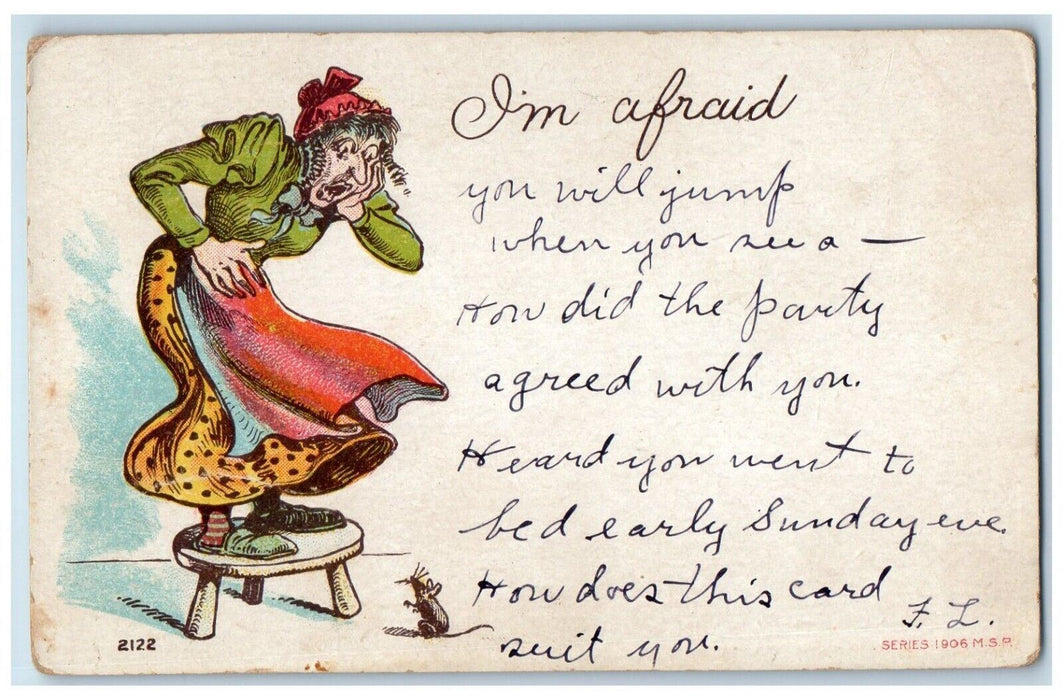 I'm afraid
you will jump
when you see a —
How did the party
agreed with you.
Heard you went to
bed early Sunday eve.
How does this card
suit you.
F. L.
2122
SERIES 1906 M.S.P.